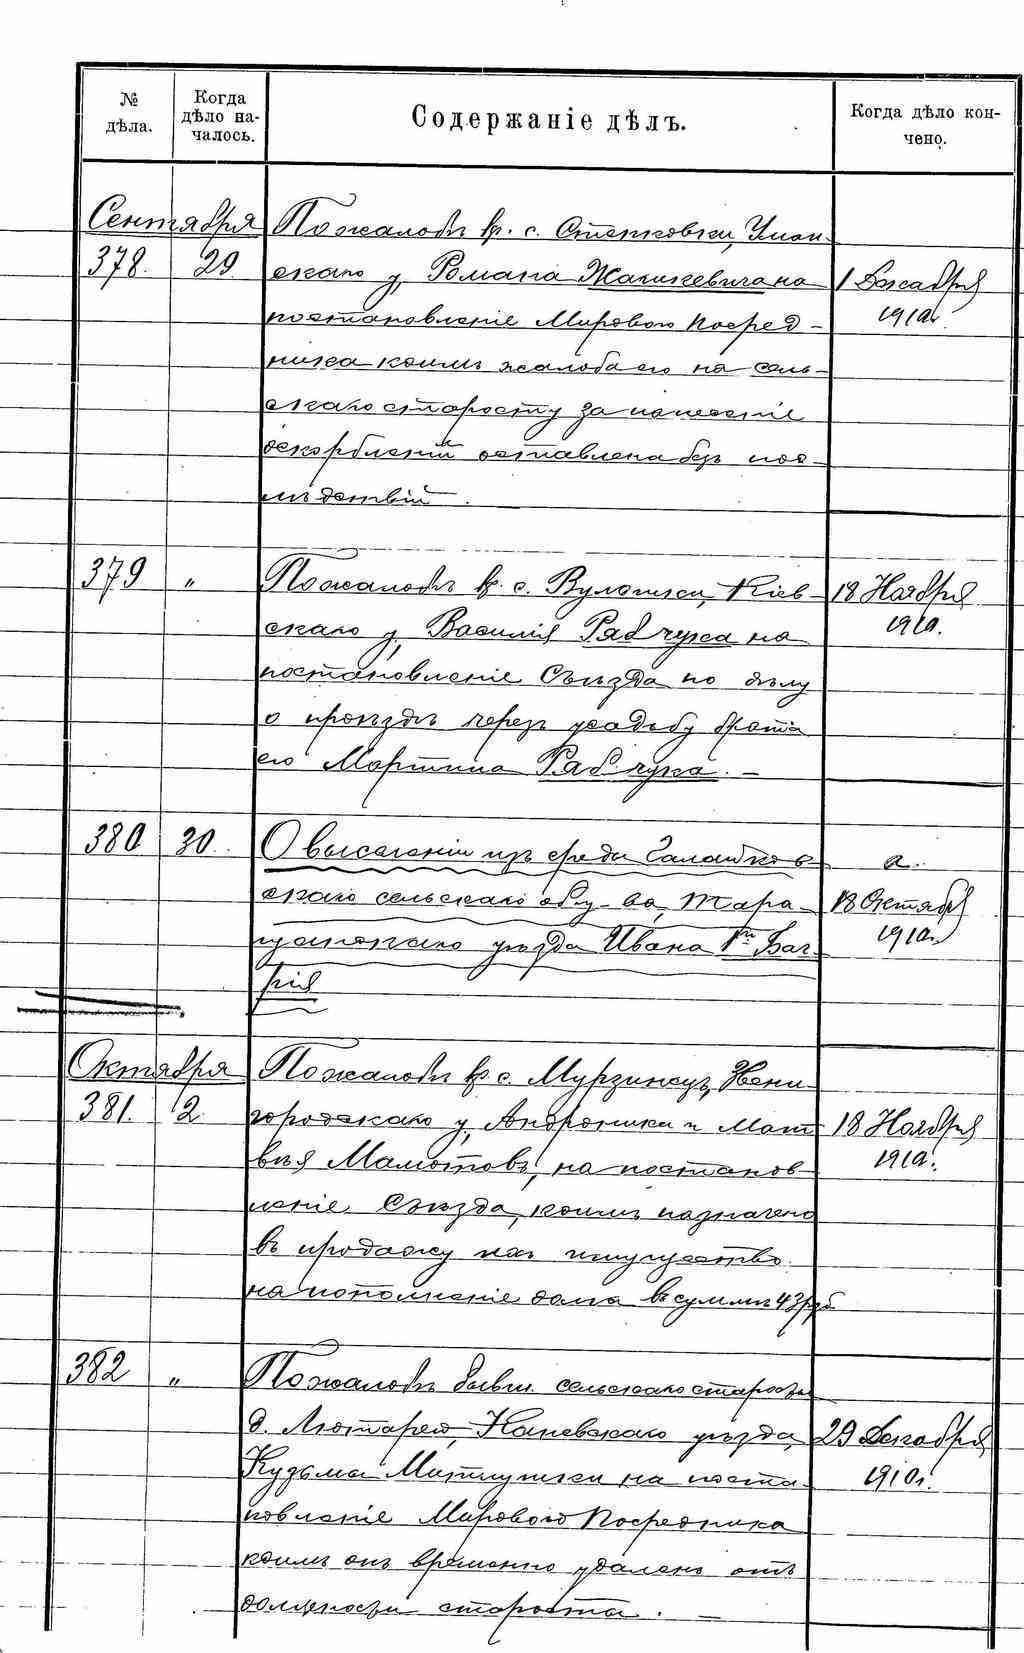 № дѣла.
Когда дѣло на-
чалось.
Содержаніе дѣлъ.
Когда дѣло кон-
чено.
Сентября
378. 29
По жалобѣ кр. с. Степковки, Уман-
скаго у, Романа на
постановленіе Мирового Посред-
ника коимъ жалоба его на сель-
скаго старосту за нанесеніе
оскорбленій оставлена безъ пос-
лѣдствій.
1 Декабря
1910г.
379 „
По жалобѣ кр. с. Кіев-
скаго у, Василія Рябчука на
постановленіе Съѣзда по дѣлу
о проѣздѣ черезъ усадьбу брата
его Мартина Рябчука. —
18 Ноября
1910.
380 30.
О выселеніи изъ среды
скаго сельскаго общ-ва, Тара-
щанскаго уѣзда Ивана 1го Баг-
рія
а.
18 Октября
1910г.
Октября
381. 2
По жалобѣ кр с. Мурзинецъ, Звени-
городскаго у, Андроника и Мат
вѣя на постанов-
леніе Съѣзда, коимъ назначено
въ продажу ихъ имущество
на пополненіе долга въ суммѣ 43 руб
18 Ноября
1910.
382 „
По жалобѣ бывш. сельскаго старосты
д. Каневскаго уѣзда,
Кузьмы на поста-
новленіе Мирового Посредника
коимъ онъ временно удаленъ отъ
должности старосты. —
29 Декабря
1910г.